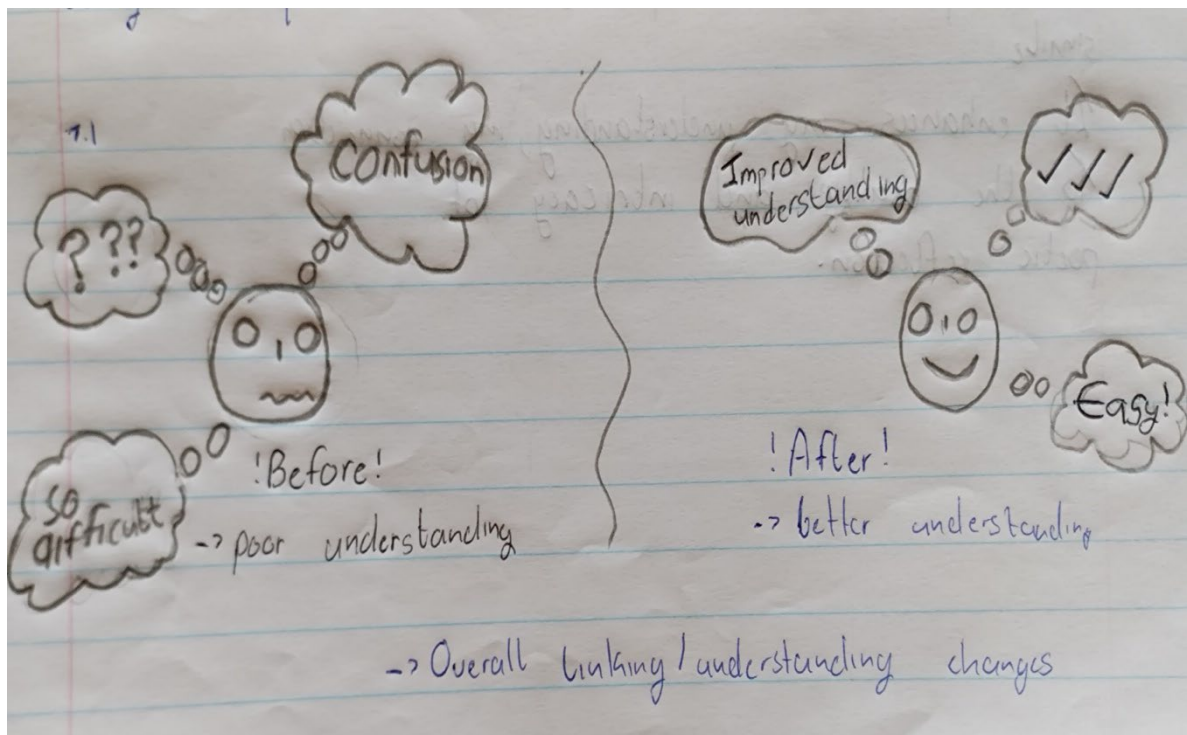 1.1
Confusion
? ??
So
difficult
!Before!
-> poor understanding
Improved
understanding
✓✓✓
Easy!
!After!
-> better understanding
-> Overall linking/understanding changes